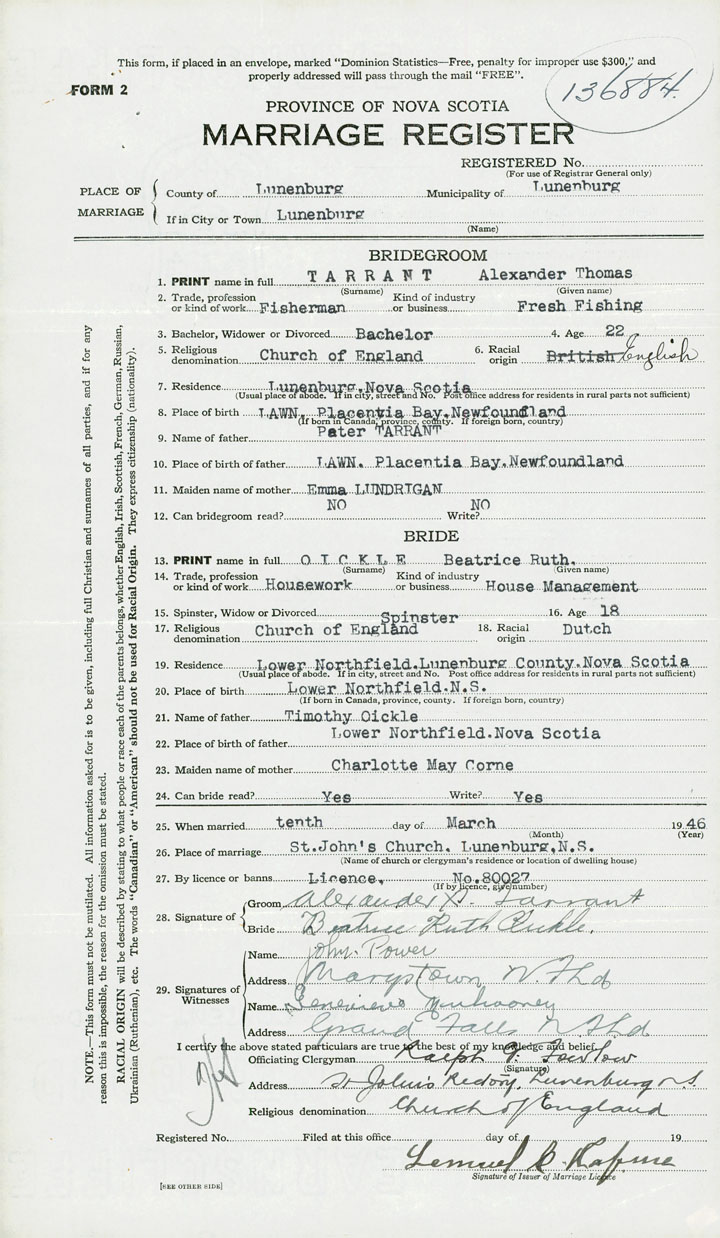 This form, if placed in an envelope, marked "Dominion Statistics—Free, penalty for improper use $300," and
properly addressed will pass through the mail "FREE".
FORM 2
136884.
PROVINCE OF NOVA SCOTIA
MARRIAGE REGISTER
REGISTERED No.
(For use of Registrar General only)
PLACE OF MARRIAGE
County of Lunenburg Municipality of Lunenburg
If in City or Town Lunenburg
(Name)
BRIDEGROOM
1. PRINT name in full TARRANT Alexander Thomas
(Surname) (Given name)
2. Trade, profession or kind of work Fisherman Kind of industry or business Fresh Fishing
3. Bachelor, Widower or Divorced Bachelor 4. Age 22
5. Religious denomination Church of England 6. Racial origin British English
7. Residence Lunenburg, Nova Scotia
(Usual place of abode. If in city, street and No. Post office address for residents in rural parts not sufficient)
8. Place of birth LAWN, Placentia Bay, Newfoundland
(If born in Canada, province, county. If foreign born, country)
9. Name of father Peter TARRANT
10. Place of birth of father LAWN. Placentia Bay, Newfoundland
11. Maiden name of mother Emma LUNDRIGAN
12. Can bridegroom read? NO Write? NO
BRIDE
13. PRINT name in full OICKLE Beatrice Ruth.
(Surname) (Given name)
14. Trade, profession or kind of work Housework Kind of industry or business House Management
15. Spinster, Widow or Divorced Spinster 16. Age 18
17. Religious denomination Church of England 18. Racial origin Dutch
19. Residence Lower Northfield, Lunenburg County, Nova Scotia
(Usual place of abode. If in city, street and No. Post office address for residents in rural parts not sufficient)
20. Place of birth Lower Northfield, N.S.
(If born in Canada, province, county. If foreign born, country)
21. Name of father Timothy Oickle
22. Place of birth of father Lower Northfield, Nova Scotia
23. Maiden name of mother Charlotte May Corne
24. Can bride read? Yes Write? Yes
25. When married tenth day of March 1946
(Month) (Year)
26. Place of marriage St.John's Church, Lunenburg, N.S.
(Name of church or clergyman's residence or location of dwelling house)
27. By licence or banns Licence, No.80027
(If by licence, give number)
28. Signature of
Groom Alexander Tarrant
Bride Beatrice Ruth Oickle.
29. Signatures of Witnesses
Name John Power
Address Marystown N.Fld
Name Genevieve
Address Grand Falls N Fld
I certify the above stated particulars are true to the best of my knowledge and belief.
Officiating Clergyman Ralph Fowlow
(Signature)
Address St John's Rectory, Lunenburg N.S.
Religious denomination Church of England
Registered No. Filed at this office day of 19
Lemuel C. Hafnne
Signature of Issuer of Marriage Licence
[SEE OTHER SIDE]
NOTE.—This form must not be mutilated. All information asked for is to be given, including full Christian and surnames of all parties, and if for any
reason this is impossible, the reason for the omission must be stated.
RACIAL ORIGIN will be described by stating to what people or race each of the parents belongs, whether English, Irish, Scottish, French, German, Russian,
Ukrainian (Ruthenian), etc. The words "Canadian" or "American" should not be used for Racial Origin. They express citizenship (nationality).